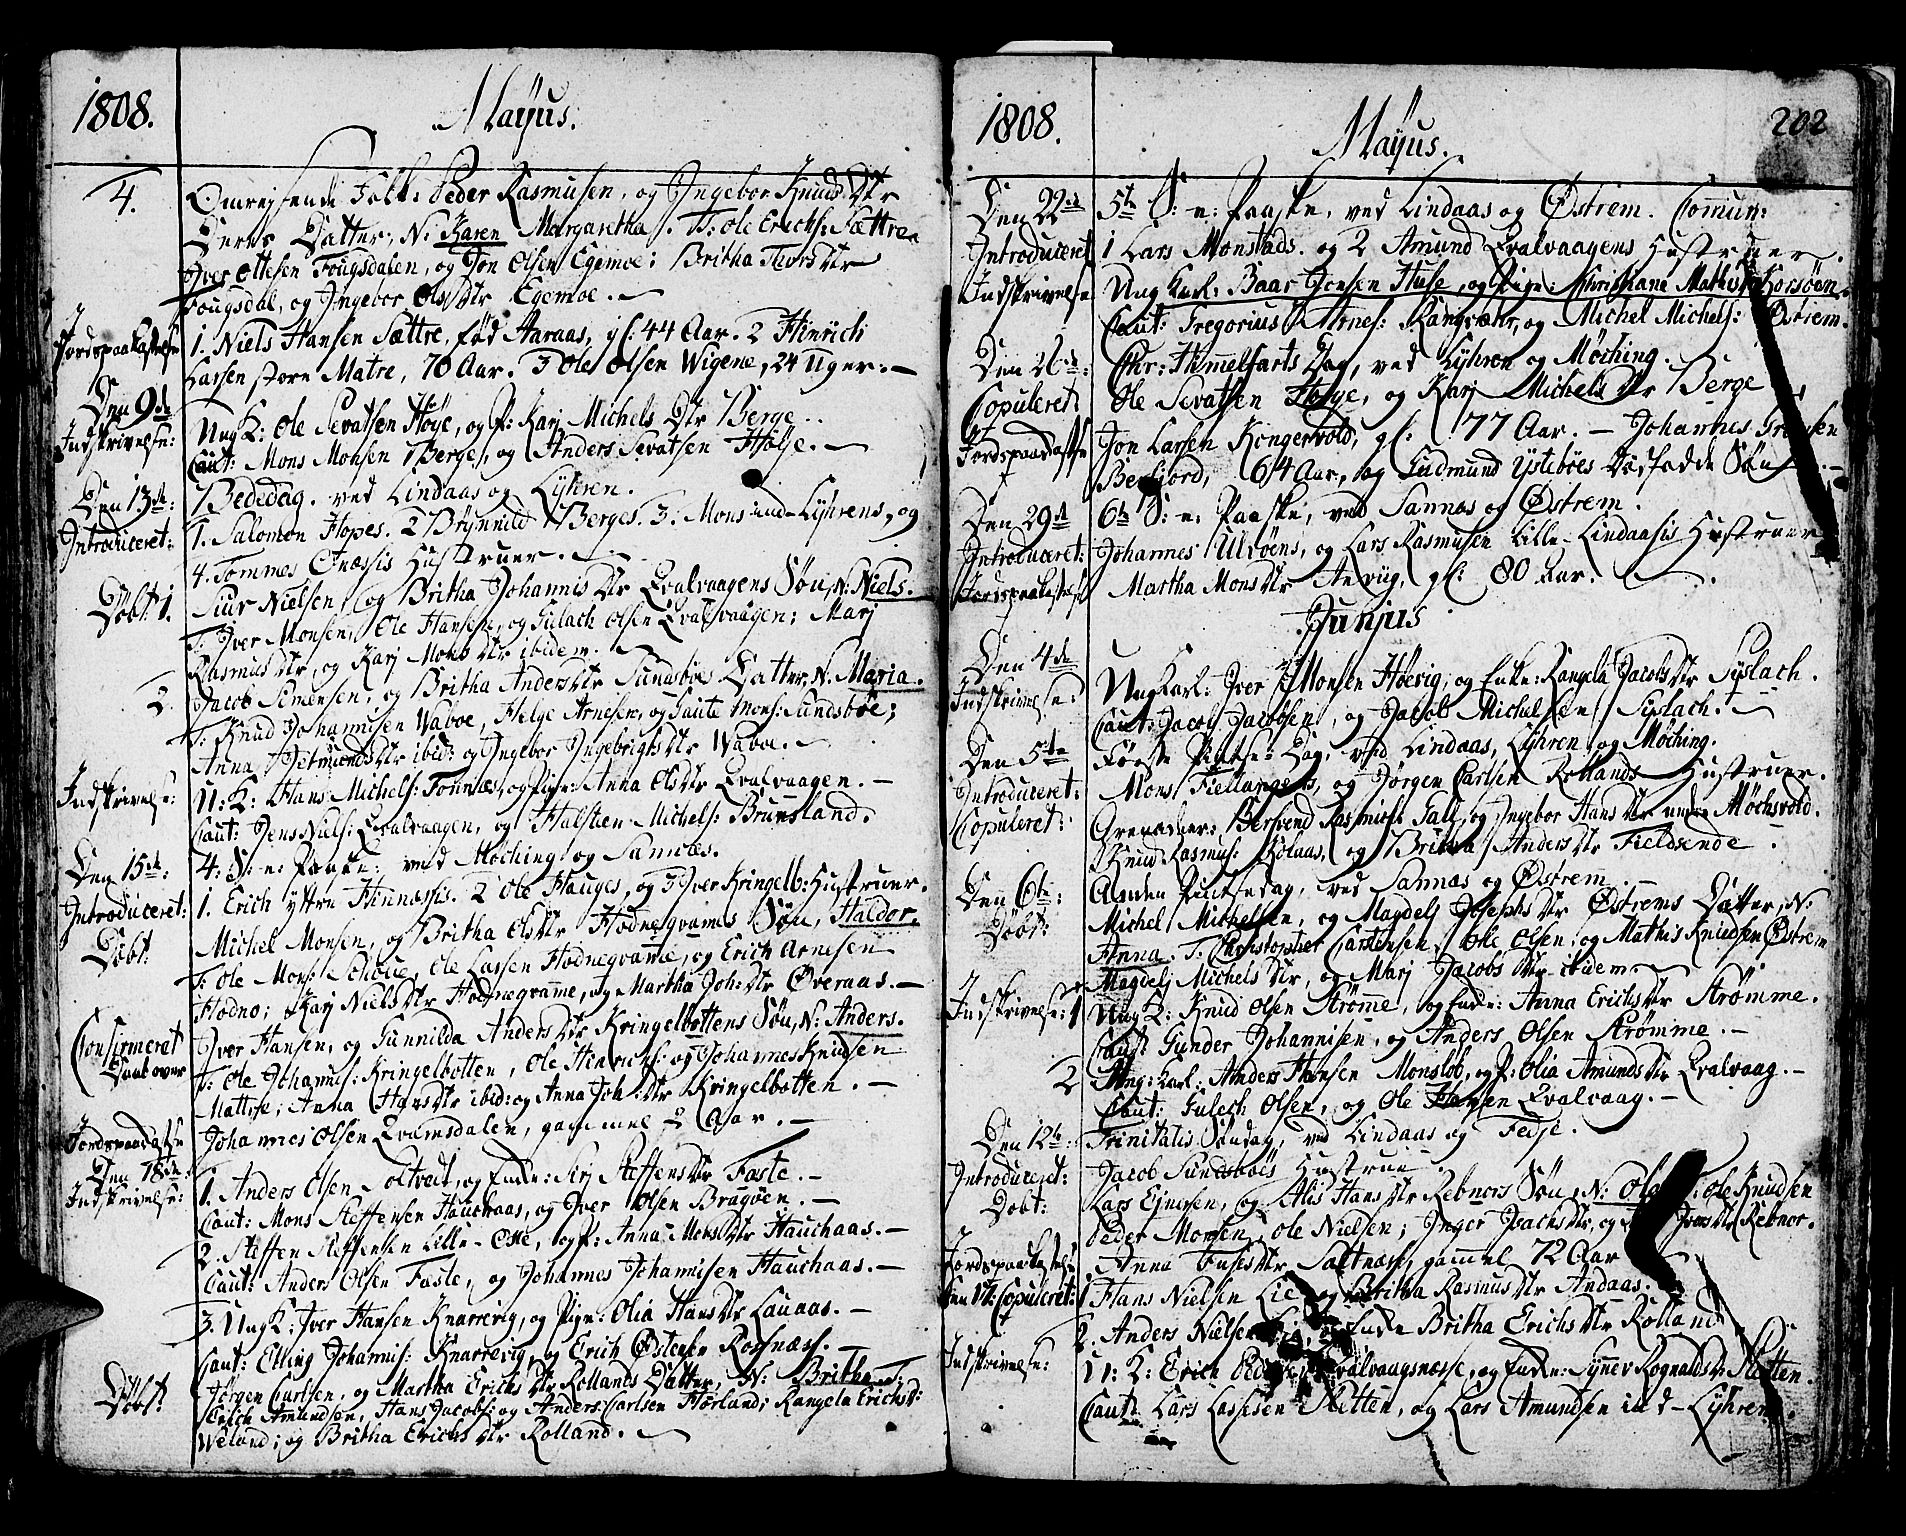 1808.
Mayus.
4.
Omreisende Folk: Peder Rasmusen, og Ingebor Knuds Dtr
Deres Datter, N: Karen Margaretha. T: Ole Erichs: Sættre
Iver Ottesen Fougsdalen, og Jon Olsen Egemoe; Britha Thors Dtr
Fougsdal, og Ingebor Ols Dtr Egemoe.
Jordspaakastelse
1. Niels Hansen Sættre, fød Aaraas, gl: 44 Aar. 2 Hinrich
Larsen store Matre, 70 Aar. 3 Ole Olsen Wigene, 24 Uger.
Den 9de
Indskrivelse:
Ung K: Ole Sevatsen Høye, og P: Karj Michels Dtr Berge.
Caut: Mons Monsen Berge, og Anders Sevatsen Holje.
Den 13de:
Bededag. ved Lindaas og Lyhren.
Introduceret:
1. Salomon Hopes. 2 Brynnild Berges. 3. Mons ind-Lyhrens, og
4. Tommes Onæssis Hustruer.
Døbt 1.
Siur Nielsen, og Britha Johannis Dtr Qvalvaagens Søn, N: Niels.
T: Iver Monsen, Ole Hansen, og Gulach Olsen Qvalvaagen; Marj
Rasmus Dtr, og Karj Mons Dtr ibidem.
2.
Jacob Simensen, og Britha Anders Dtr Sundsbøe Datter, N. Maria.
T: Knud Johannisen Waboe, Helge Arnesen, og Gaute Mons: Sundsbøe;
Anna Detmunds Dtr ibid: og Ingebor Ingebrigts Dtr Waboe.
Indskrivelse:
U: K: Hans Michels: Fonnæs, og Pige: Anna Ols Dtr Qvalvaagen.
Caut: Jens Niels: Qvalvaagen, og Halstien Michels: Brunsland.
Den 15de:
4. S: e: Paaske: ved Møching og Sannæs.
Introduceret:
1. Erich yttre Hinnøssis. 2 Ole Hauges, og 3 Iver Kringelb: Hustruer.
Døbt
Michel Monsen, og Britha Ols Dtr Hodneqvames Søn, Haldor.
T: Ole Mons: Schoue, Ole Lassen Hodneqvamme, og Erich Arnesen
Hodno; Karj Niels Dtr Hodneqvamme, og Martha Joh: Dtr Øveraas.
Confirmeret
Daab over
Iver Hansen, og Gunnilda Anders Dtr Kringelbottens Søn, N: Anders.
T: Ole Johannis: Kringelbotten, Ole Hinrichs: og Johannes Knudsen
Mattre; Anna Hans Dtr ibid: og Anna Joh: Dtr Kringelbotten.
Jordspaakastelse
Johannes Olsen Qvamsdalen, gammel 2 Aar.
Den 18de
Indskrivelse:
1. Anders Olsen Soltvedt, og Enke: Siri Steffens Dtr Faste.
Caut: Mons Steffensen Hauchaas, og Iver Olsen Bragøen.
2. Steffen Steffensen Lille-Ose, og P: Anna Mons Dtr Hauchaas.
Caut: Anders Olsen Faste, og Johannes Johannisen Hauchaas.
3. Ung K: Iver Hansen Knarrevig, og Pige: Olia Hans Dtr Lauaas.
Caut: Elling Johannis: Knarrevig, og Erich Østensen Rossnæss.
Døbt
Jørgen Carlsen, og Martha Erichs Dtr Rollands Datter, N: Britha. T:
Erich Amundsen, Hans Jacobs: og Anders Carlsen Hopland; Rangela Erichs D:
Weland; og Britha Erichs Dtr Rolland.
1808.
Mayus.
202
Den 22de
5te S: e: Paaske, ved Lindaas og Østrem. Commun:
Introduceret
1 Lars Monstads. og 2 Amund Qvalvaagens Hustruer.
Indskrivelse
Ung Karl: Baar Jensen Huse, og Pige: Christiane Mathis D: Korsøen.
Caut: Gregorius Arnes: Rangsæhr, og Michel Michels: Østrem.
Den 26de:
Chr: Himmelfarts Dag, ved Lyhren og Møching.
Copuleret
Ole Sevatsen Holye, og Karj Michels Dtr Berge
Jordspaakastelse
Jon Larsen Kongervold, gl: 77 Aar. — Johannes
Berfjord, 64 Aar, og Gudmund Ystebøes Dødfødde Søn
Den 29de
6te S: e: Paaske, ved Sannæs og Østrem.
Introduceret:
Johannes Ulvøens, og Lars Rasmusen Lille-Lindaasis Hustruer
Jordspaakastelse
Martha Mons Dtr Andvig, gl: 80 Aar.
Junius
Den 4de
Indskrivelse:
Ung Karl: Iver Monsen Høevig, og Enke: Rangela Jacobs Dtr Syslach.
Caut: Jacob Jacobsen, og Jacob Michelsen Syslach.
Den 5te
Første Pintse-Dag, ved Lindaas, Lyhren og Møching.
Introduceret:
Mons Fiellangers, og Jørgen Carlsen Rollands Hustruer.
Copuleret:
Grenadeer: Bersvend Rasmusen Gall, og Ingebor Hans Dtr nedre Møchsvold.
Knud Rasmus: Kolaas, og Britha Anders Dtr Fieldsende.
Den 6te:
Anden Pintsedag, ved Sannæs og Østrem.
Døbt:
Michel Michelsen, og Magdelj Josephs Dtr Østrems Datter, N:
Anna. T: Christopher Carstensen, Ole Olsen, og Mathis Knudsen Østrem
Magdelj Michels Dtr, og Marj Jacobs Dtr ibidem.
Indskrivelse: 1
Ung K: Knud Olsen Strømme, og Enke: Anna Erichs Dtr Strømme.
Caut: Gunder Johannisen, og Anders Olsen Strømme.
2
Ung: Karl: Anders Hansen Monsløb, og P: Olia Amunds Dtr Qvalvaag.
Caut: Gulach Olsen, og Ole Hansen Qvalvaag.
Den 12te:
Trinitatis Søndag, ved Lindaas og Fedje.
Introduceret:
Jacob Sundsbøes Hustrue
Døbt:
Lars Ejnersen, og Alis Hans Dtr Rebnors Søn, N: Ole. T: Ole Knudsen
Peder Monsen, Ole Nielsen; Inger Isachs Dtr, og Ivers Dtr Rebnor.
Jordspaakastelse
Anna Fuses Dtr Saltnæss, gammel 72 Aar
Copuleret:
1 Hans Nielsen Lie og Britha Rasmus Dtr Andaas.
2. Anders Nielsen Enke Britha Erichs Dtr Rolland
Indskrivelse:
U: K: Erich Qvalvaagsnæsse, og Enke: Synnev Rognalds Dtr Sletten.
Caut: Lars Lassesen Sletten, og Lars Amundsen ind-Lyhren.